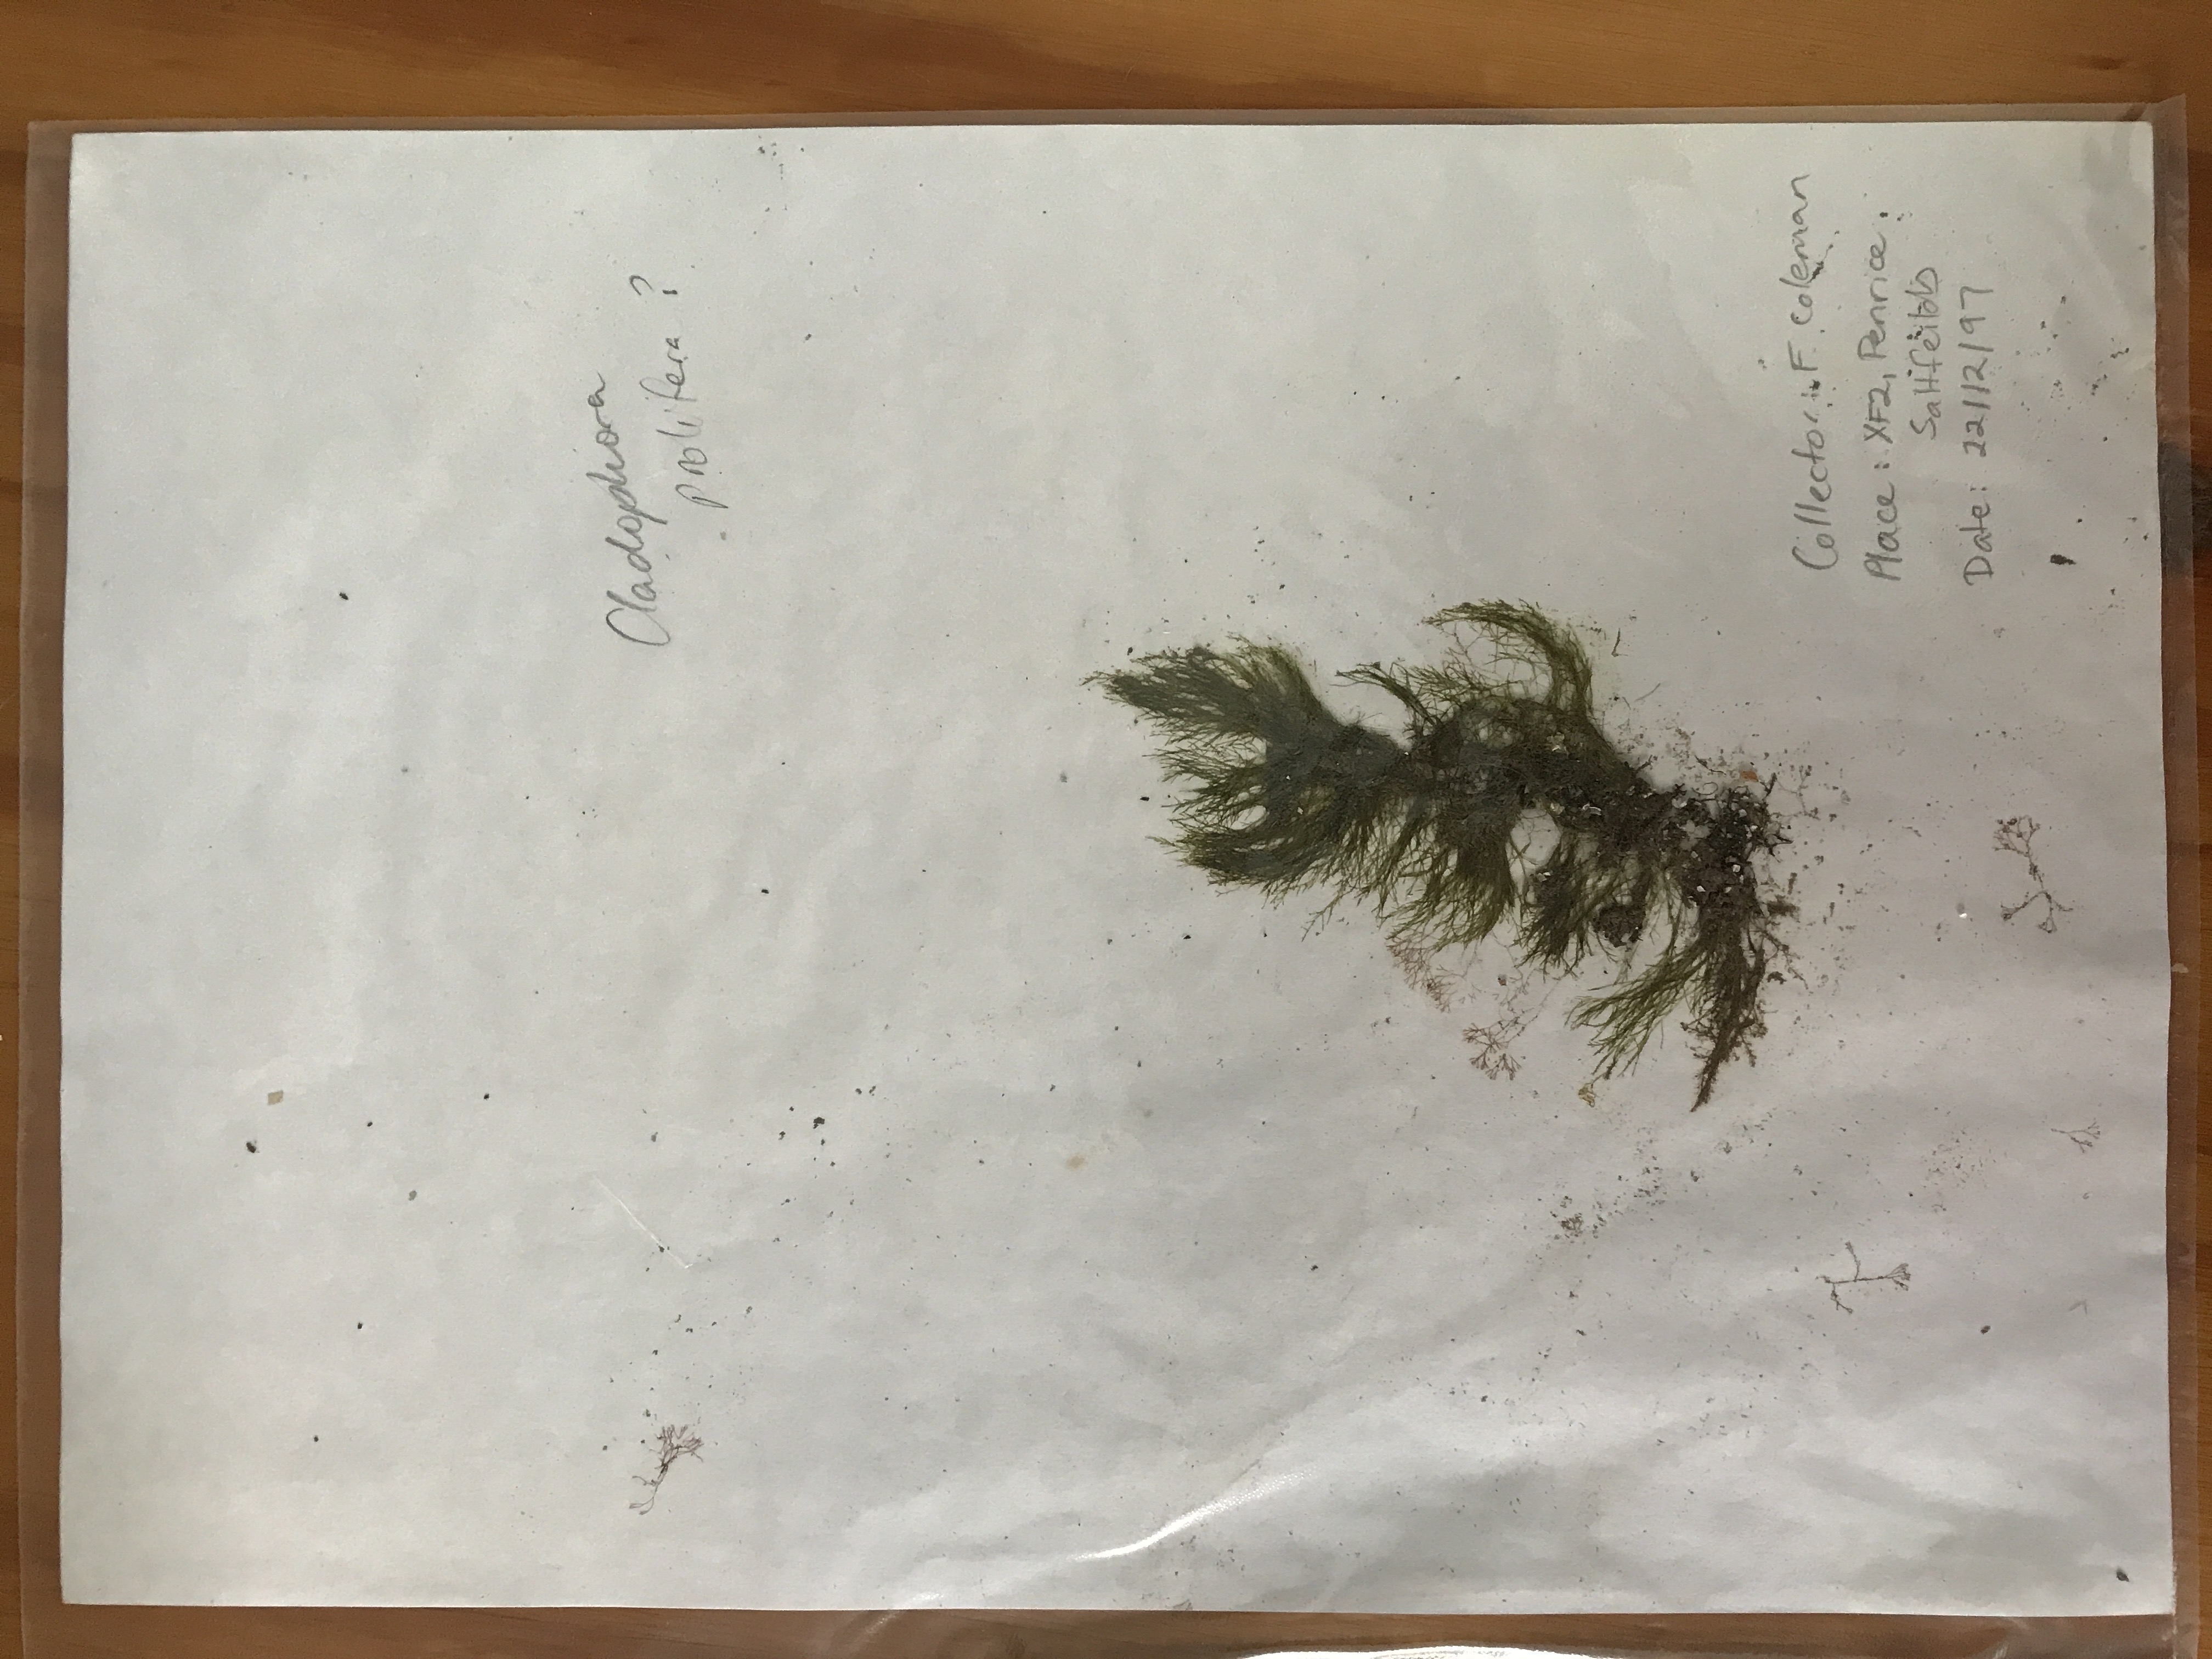 Cladophora
Prolifera ?
Collector: F Coleman
Place: XF2, Penrice.
Saltfeilds
Date: 22/12/97